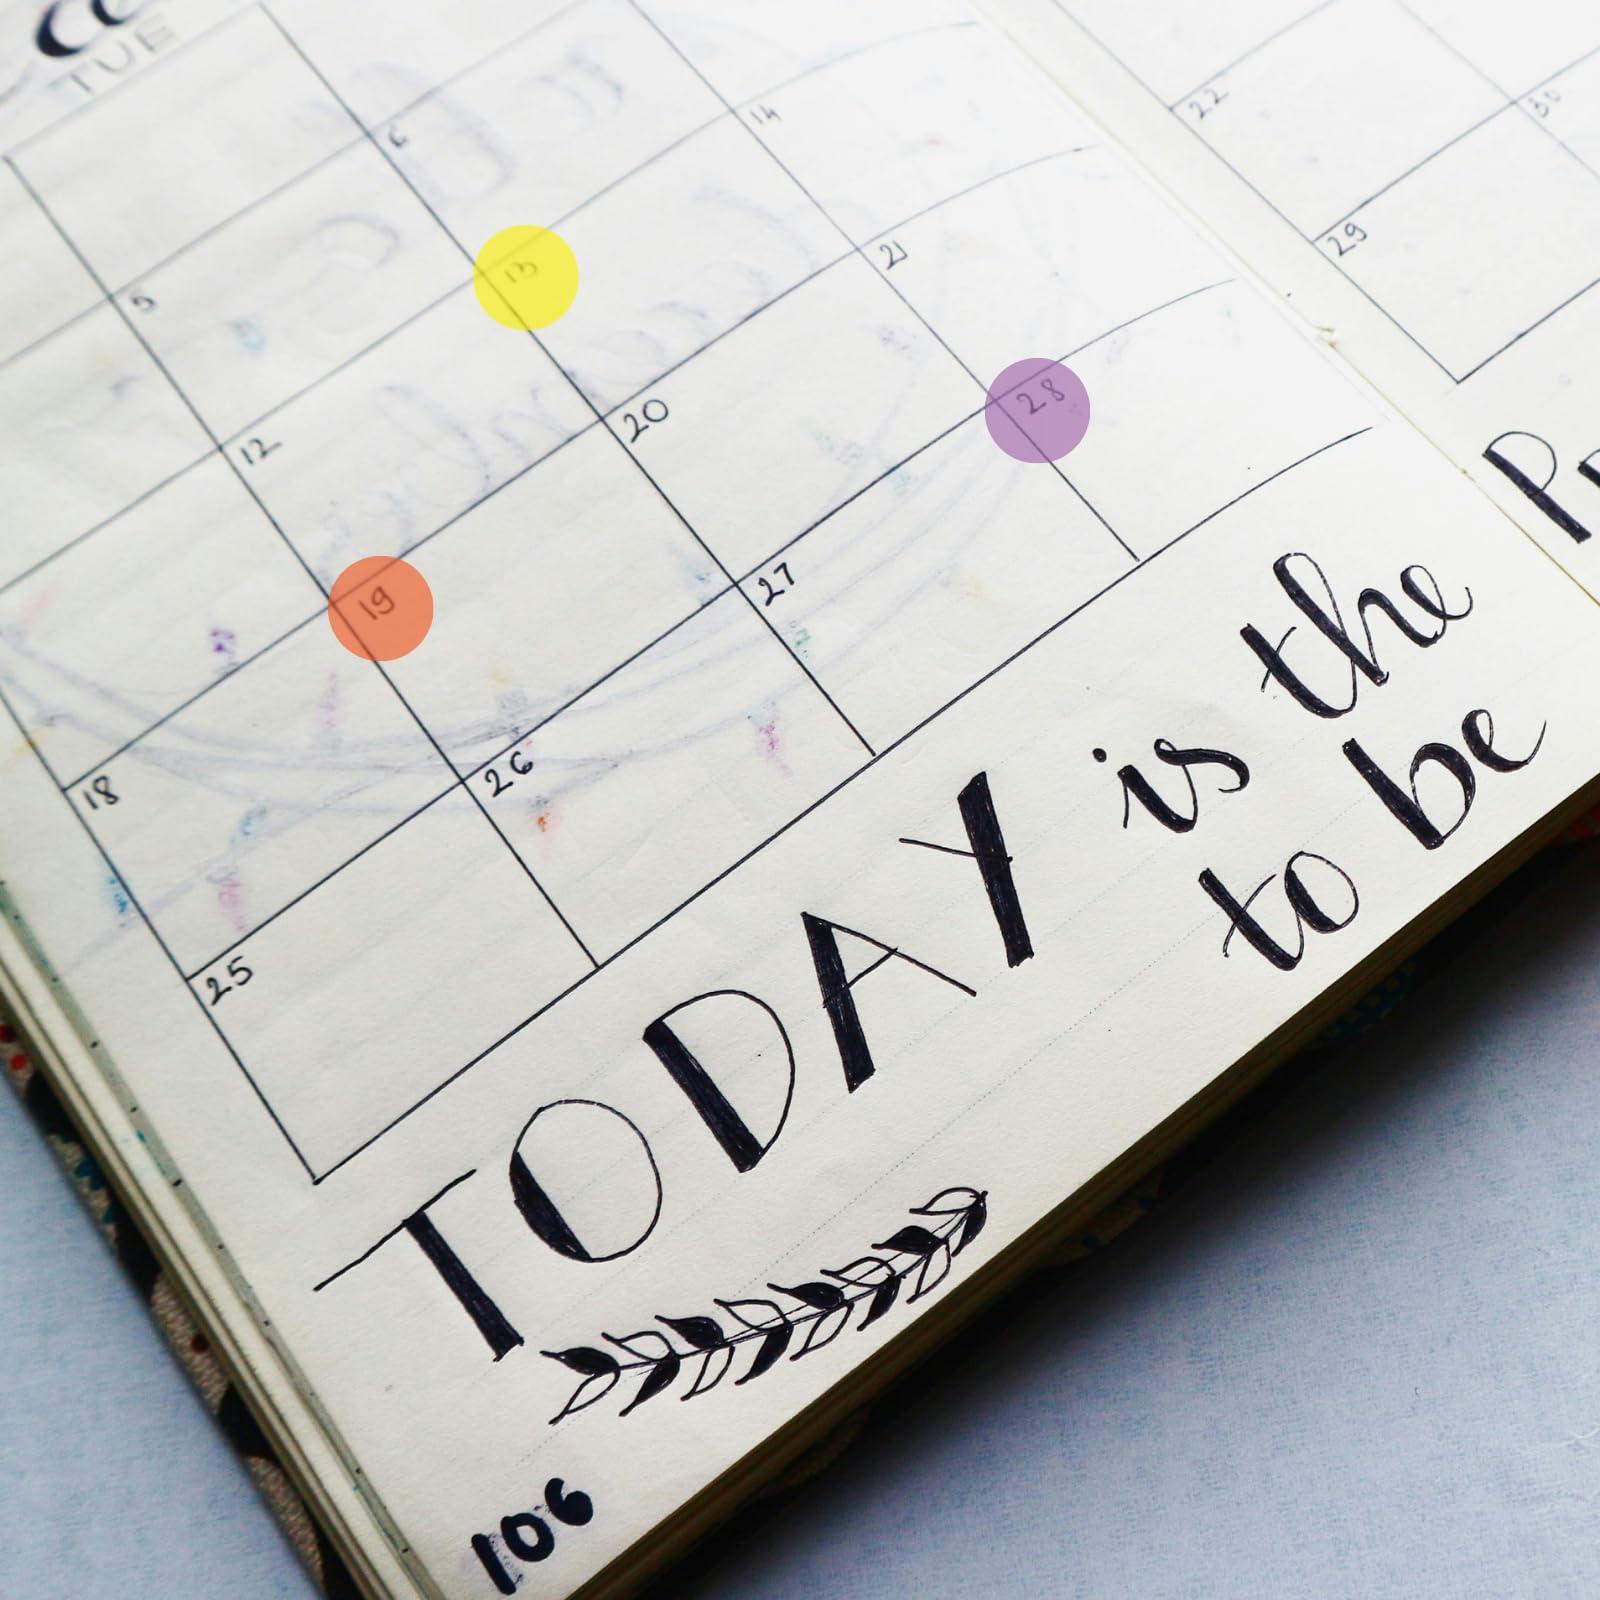 TUE
5 6
12 13 14
18 19 20 21
25 26 27 28
22
29 30
TODAY is the
to be
106